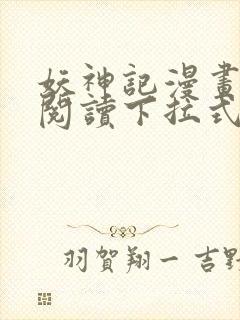 妖神記漫畫
閱讀下拉式
羽賀翔一 吉野